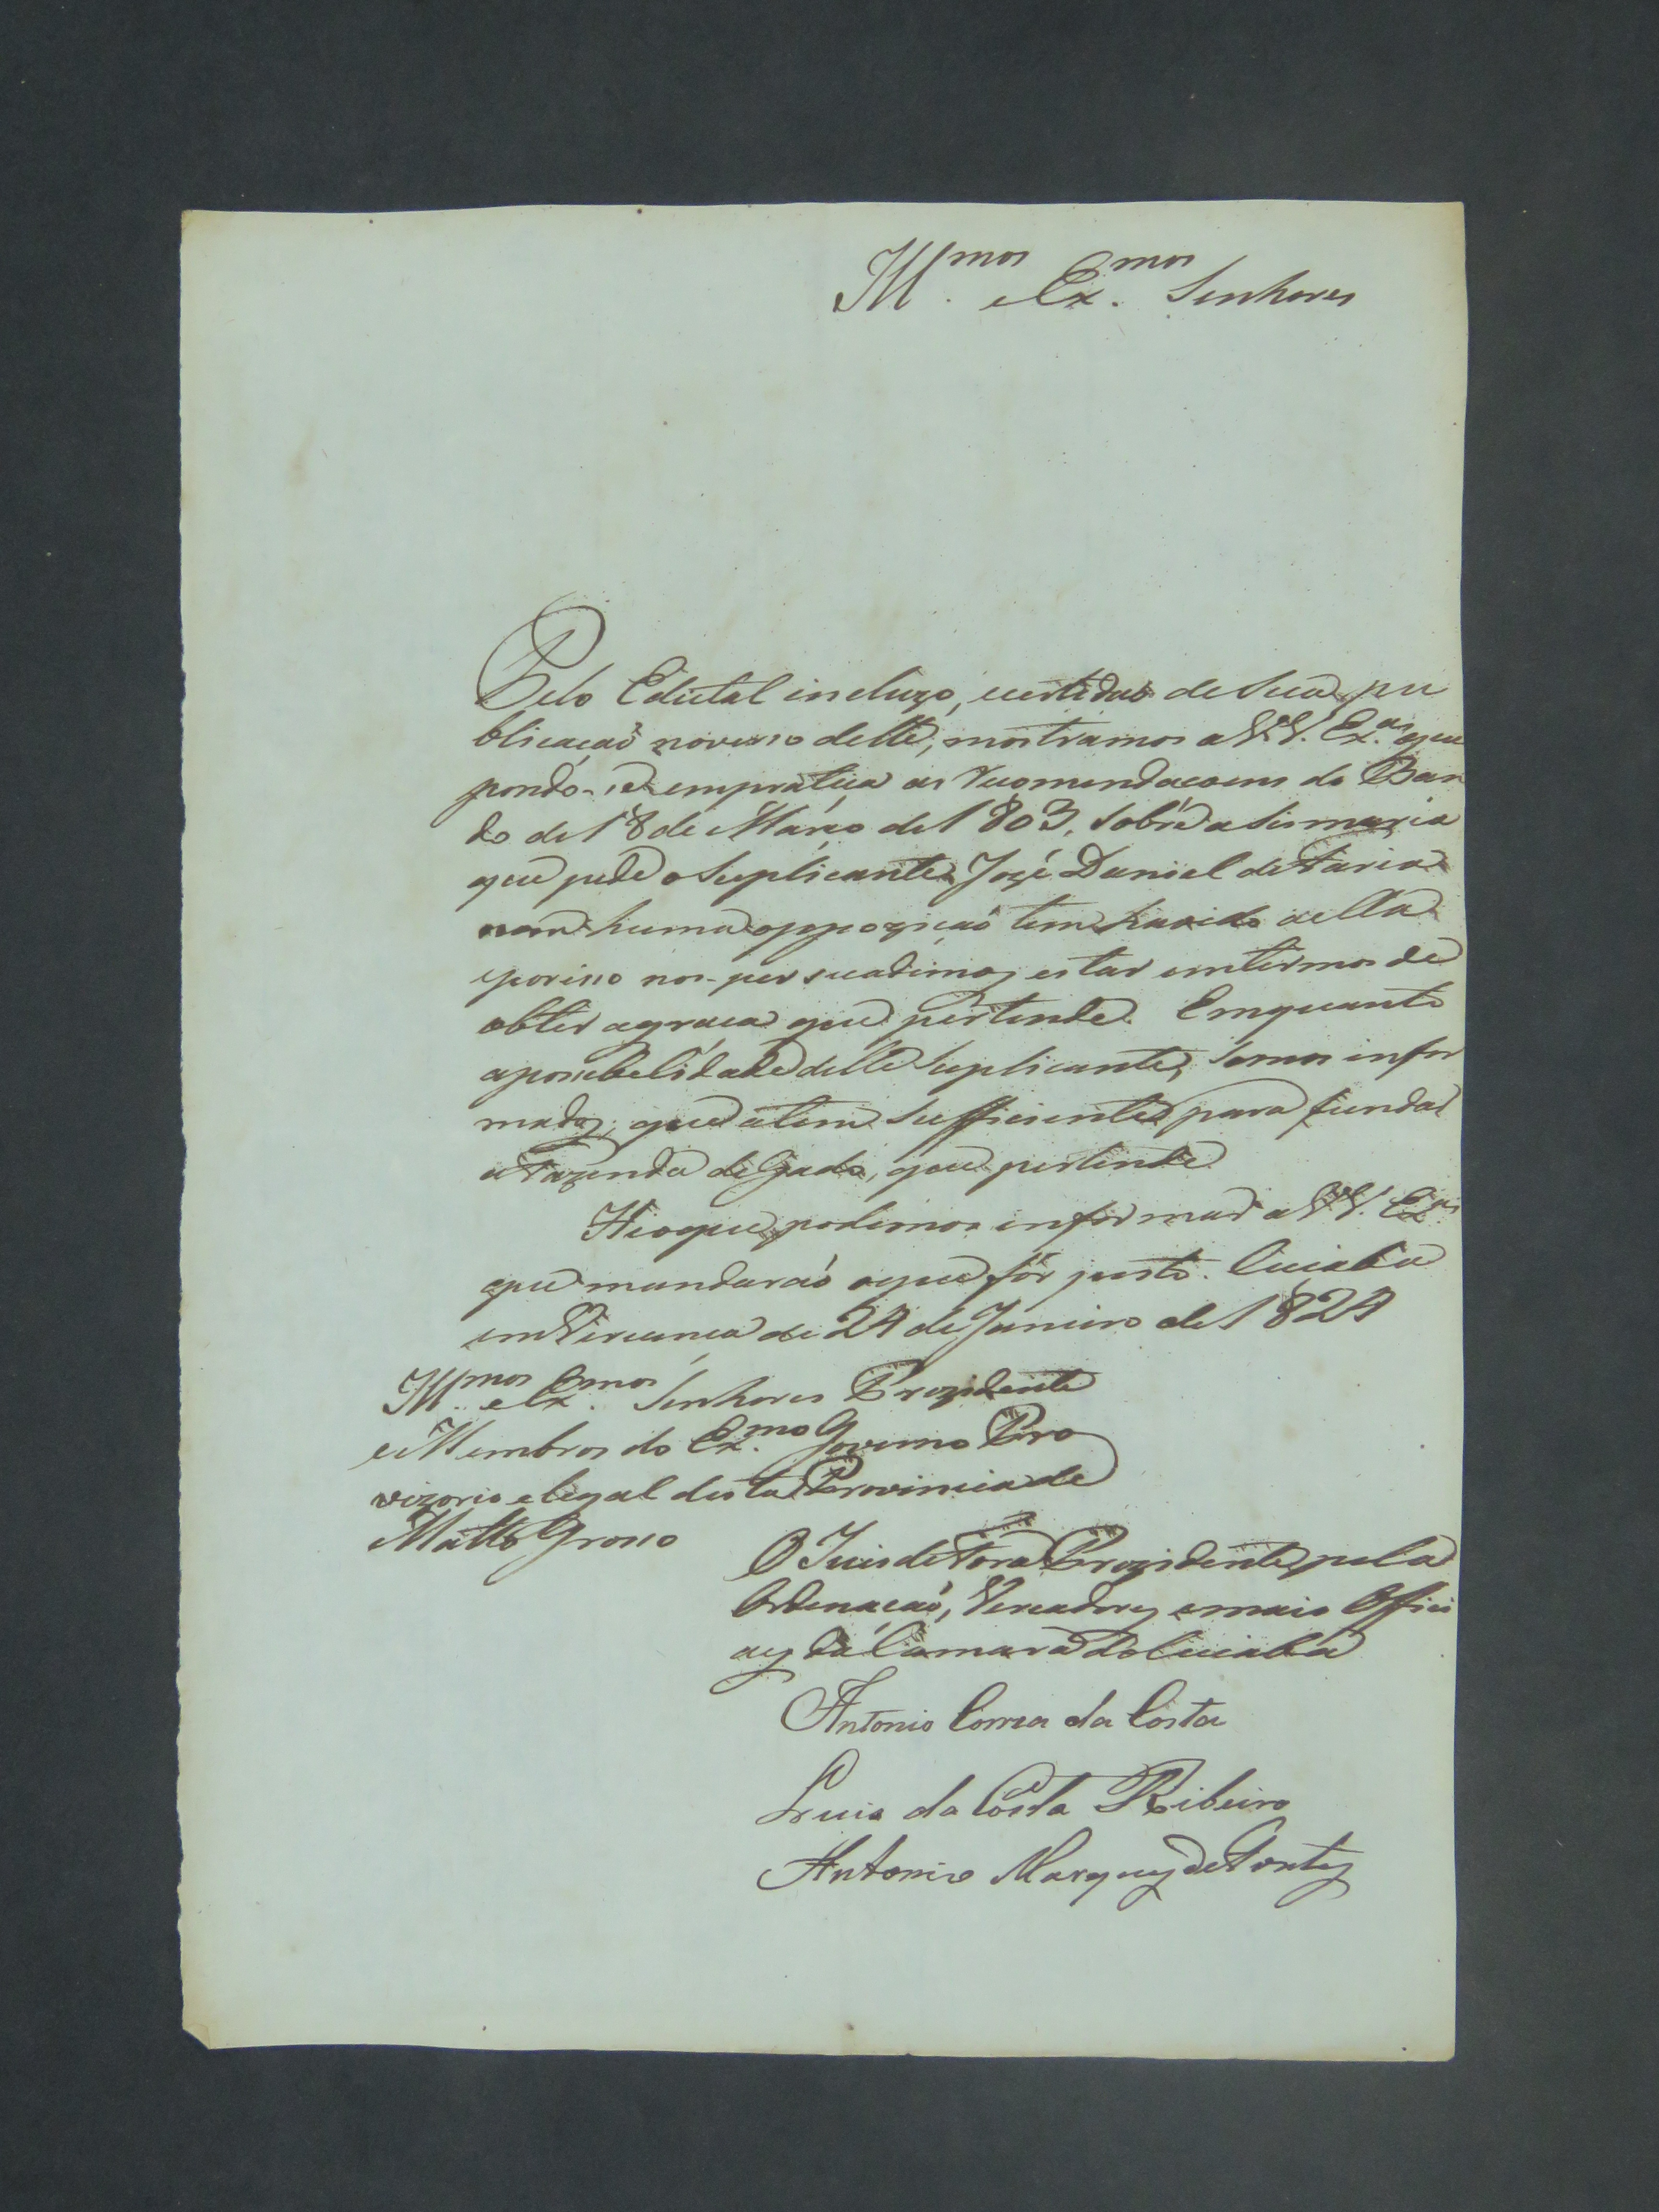 Ill.mos e Ex.mos Senhores
Pelo Edictal incluzo, certidaõ de sua pu
blicaçaõ noverso delle, mostramos a V.V. Ex.as que
pondo-se empratica as recomendacoens do Ban
do de 18 de Março de 1803, sobre a sismaria
que pede o Suplicante José Daniel de Faria
nem huma oppoziçaõ tem havido aella
eporisso nos-persuadimos estar emtermos de
obter agraca que pertende. Emquanto
aposcebelidade delle Suplicante, somos infor
mados, que atem sufficiente para fundar
a Fazenda de Gado, que pertende
He oque podemos informar a VV. Ex.as
que mandaraõ oque fôr justo. Cuiaba
em Vereanca de 24 de Janeiro de 1824
Ill.mos e Ex.mos Senhores Prezidente
e Membros do Ex.mo Governo Pro
vizorio e legal desta Provincia de
Matto Grosso
O Juis de Fora Prezidente pela
Ordenacaõ, Vereadores emais Offici
aes da Camara do Cuiaba
Antonio Correa da Costa
Luis da Costa Ribeiro
Antonio Marques de Fontes